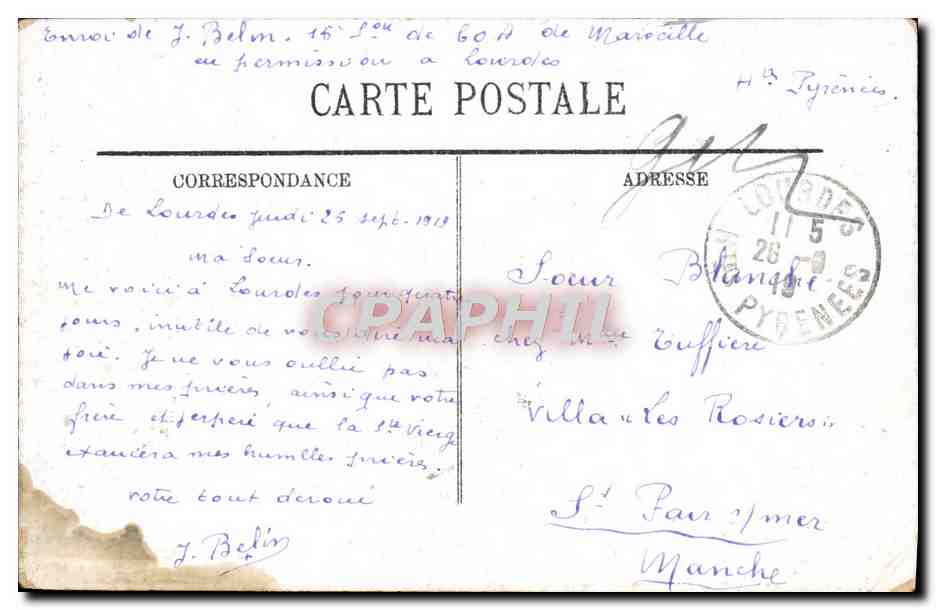 Envoi de J. Belin. 15e Son de COA de Marseille
en permission a Lourdes
Htes Pyrénées.
CARTE POSTALE
CORRESPONDANCE
De Lourdes jeudi 25 sept. 1919
Ma Soeur.
Me voici à Lourdes pour quatre
jours, inutile de vous dire ma
joie. Je ne vous oublie pas
dans mes prières, ainsi que votre
frère et j'espère que la Ste Vierge
exaucera mes humbles prières.
votre tout dévoué
J. Belin
ADRESSE
LOURDES
11 5
26 - 9
19
PYRENEES
Soeur Blanche
chez Mme Tuffiere
Villa "Les Rosiers"
St Pair s/mer
Manche
CPAPHIL